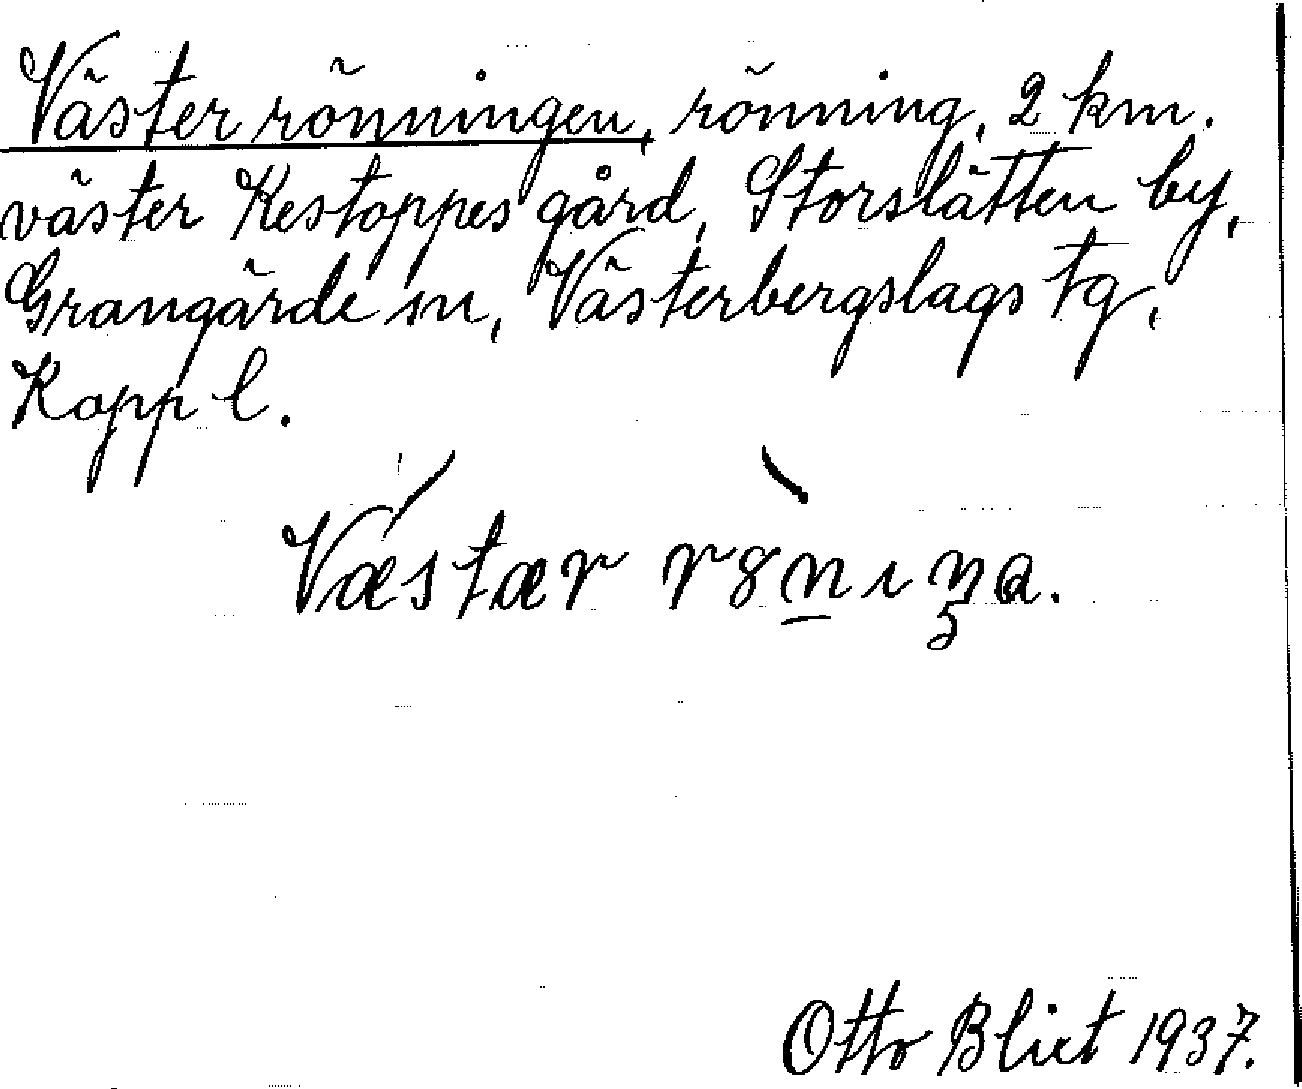 Västerrönningen, rönning, 2 km.
väster Kestoppes gård, Storslätten by,
Grangärde sn, Västerbergslags tg,
Kopp l.
Væstær rȣn̲ıŋa.
Otto Blixt 1937.